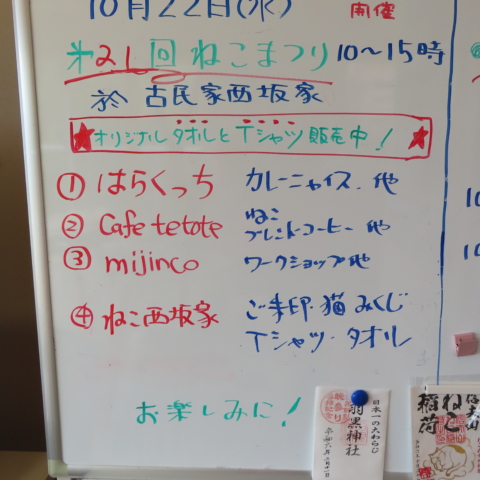 10月22日(水) 開催
才21回 ねこまつり 10〜15時
於 古民家西坂家
★オリジナル タオルと Tシャツ 販売中！★
① はらくっち カレーニャイス. 他
② Cafe tetote ねこ
ブレンドコーヒー 他
③ mijinco ワークショップ他
④ ねこ西坂家 ご朱印・猫みくじ
Tシャツ・タオル
お楽しみに！
日本一の大わらじ
羽黒神社
ねこ
稲荷